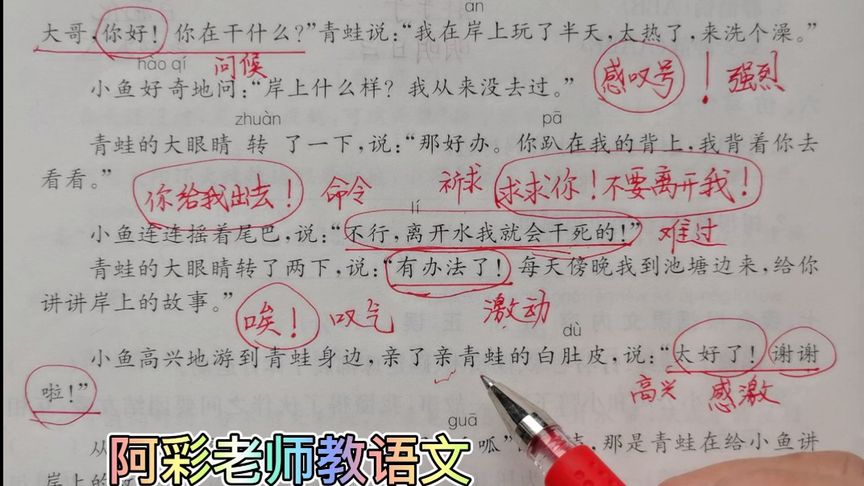 àn
大哥，你好！你在干什么？”青蛙说：“我在岸上玩了半天，太热了，来洗个澡。”
hào qí 问候
小鱼好奇地问：“岸上什么样？我从来没去过。” 感叹号 ！强烈
zhuàn pā
青蛙的大眼睛 转 了一下，说：“那好办。你趴在我的背上，我背着你去
看看。” 你给我出去！ 命令 祈求 求求你！不要离开我！
lí
小鱼连连摇着尾巴，说：“不行，离开水我就会干死的！” 难过
青蛙的大眼睛转了两下，说：“有办法了！每天傍晚我到池塘边来，给你
讲讲岸上的故事。” 唉！ 叹气 激动
dù
小鱼高兴地游到青蛙身边，亲了亲青蛙的白肚皮，说：“太好了！谢谢
啦！” 高兴 感激
guā
从 呱” ，那是青蛙在给小鱼讲
岸上的
阿彩老师教语文